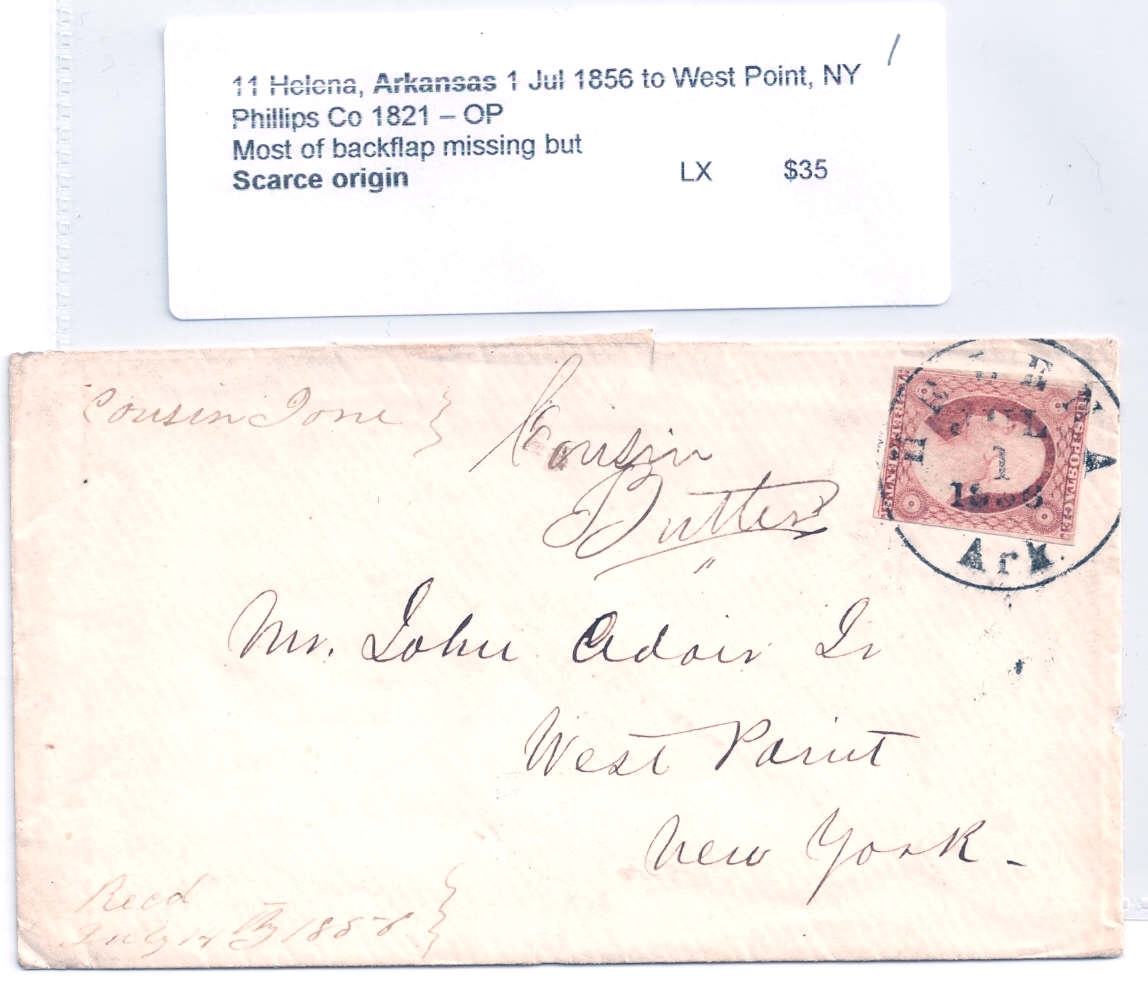 11 Helena, Arkansas 1 Jul 1856 to West Point, NY
Phillips Co 1821 – OP
Most of backflap missing but
Scarce origin LX $35
Cousin
Cousin
Butter
HELENA
JUL
1
1856
Ark.
Mr. John Adair Jr
West Point
New York -
Recd
July 14th 1856